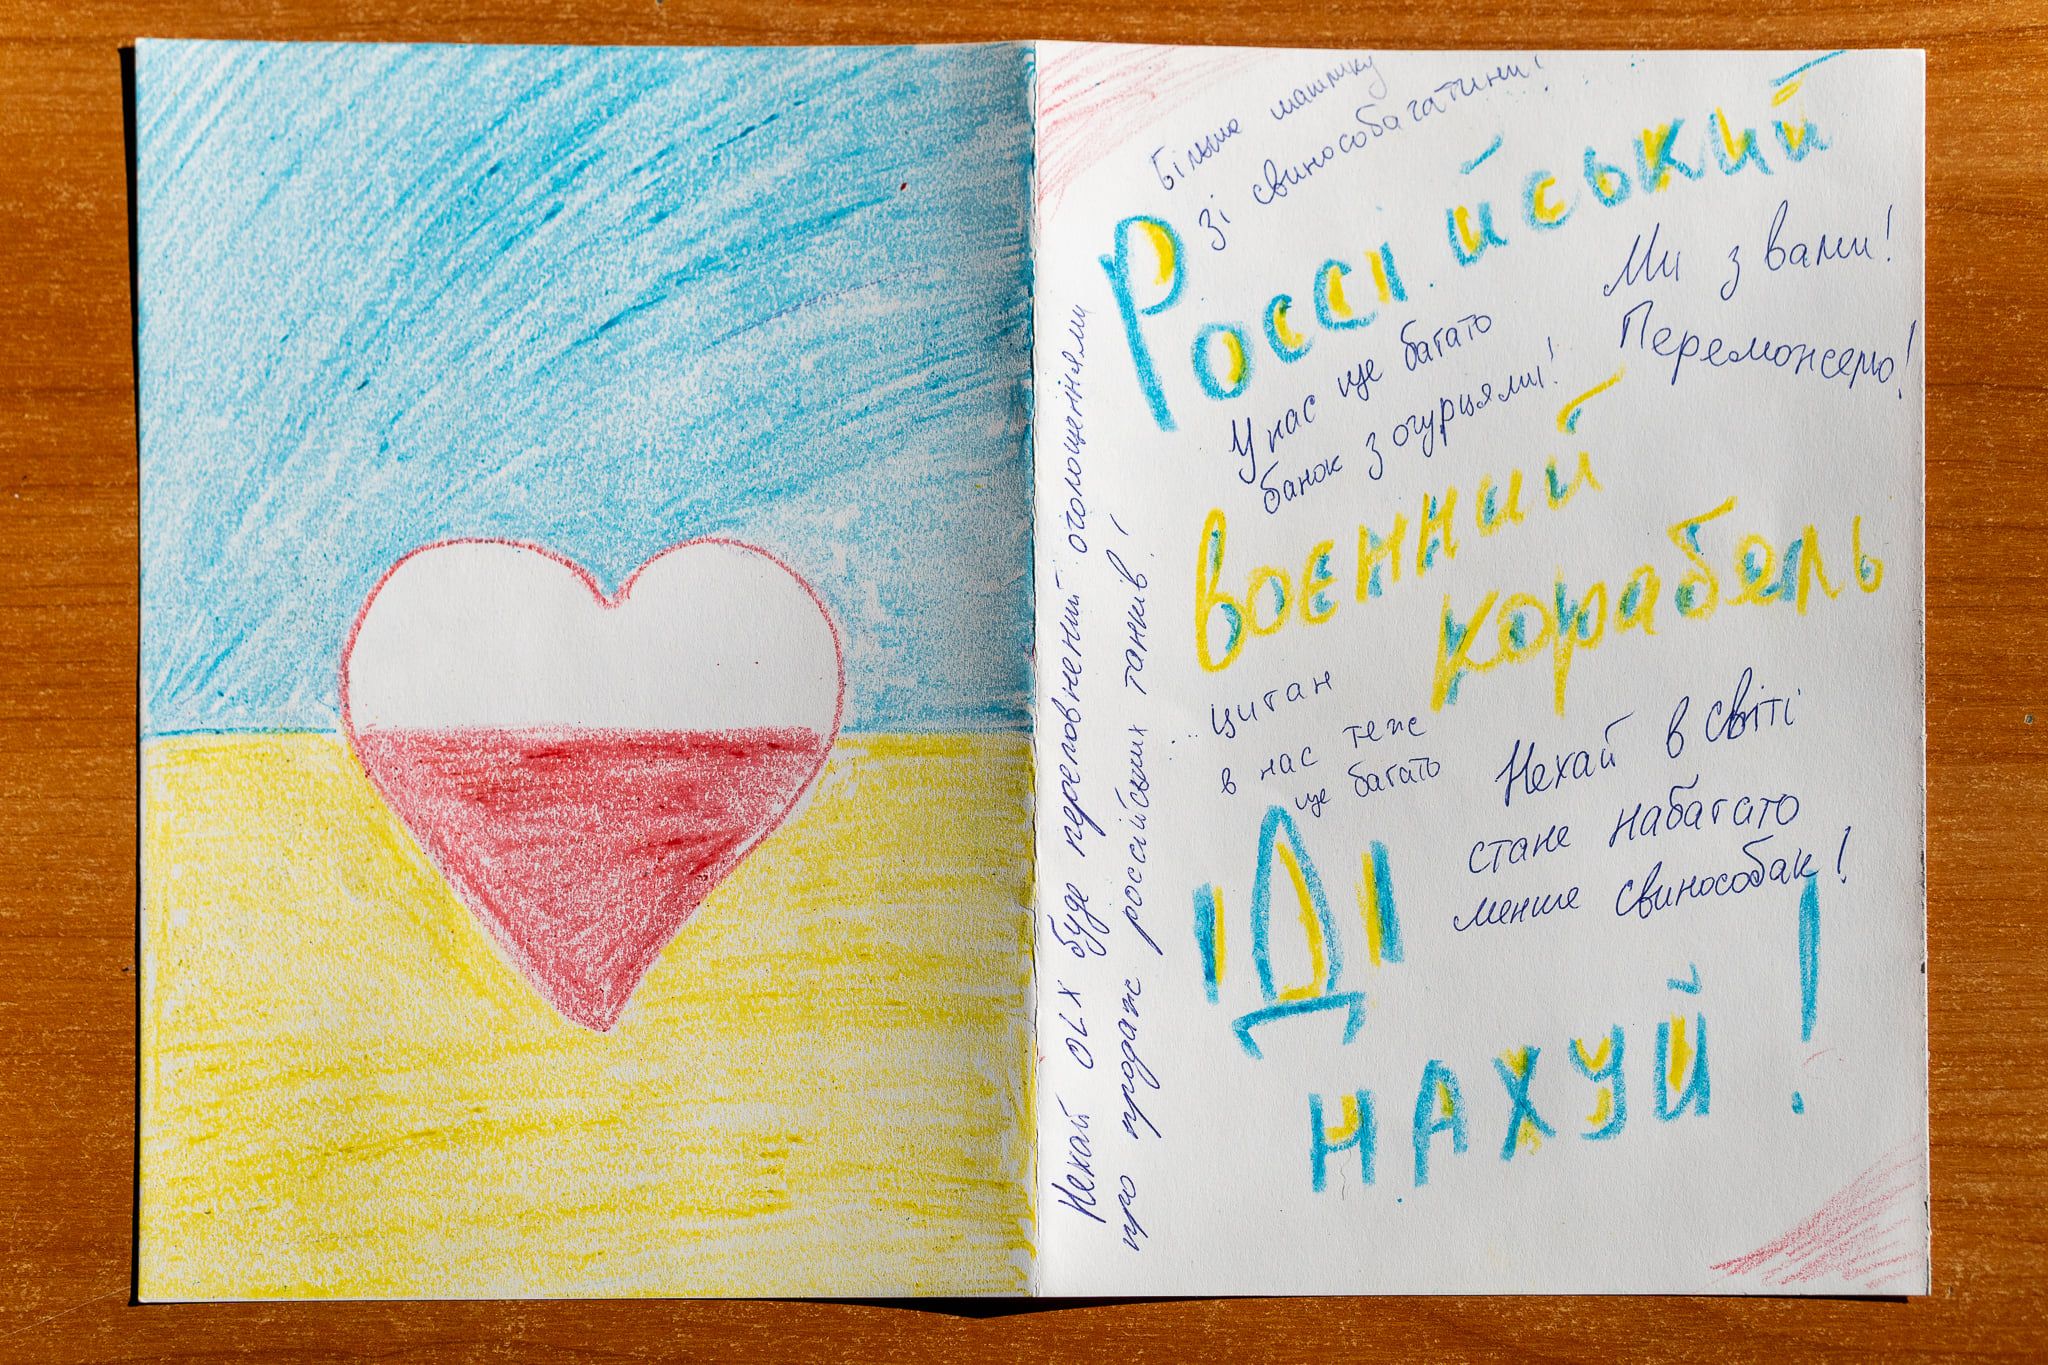 Більше шашлику
зі свинособагатини!
Россійський
Ми з вами!
Переможемо!
У нас ще багато
банок з огурцями!
военний
корабель
циган
в нас теж
ще багато
Нехай в світі
стане набагато
менше свинособак!
іДі
НАХУЙ!
Нехай OLX буде переповнений оголошеннями
про продаж російських танків!